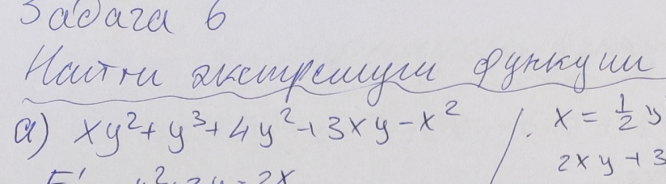 Задача 6
Найти экстремули функции
а) xy²+y³+4y²+3xy-x²
x = ½ y
2xy + 3
F' y²+3y-2x